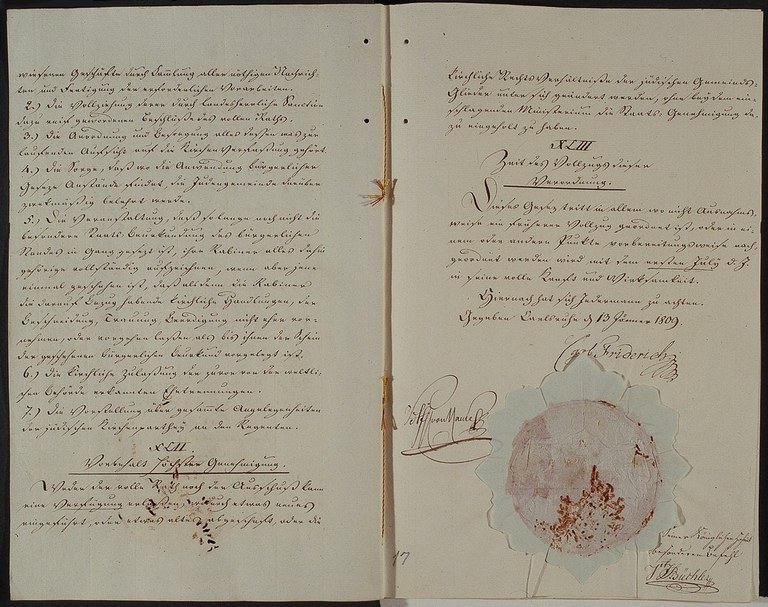 wiesenen Geschäfte durch Samlung aller nöthigen Nachrich-
ten und Fertigung der erforderlichen Vorarbeiten.
2.) die Vollziehung derer durch Landesherrliche Sanction
dazu reif gewordenen Beschlüsse des vollen Raths.
3.) die Anordnung und Besorgung alles dessen was zur
laufenden Aufsicht auf die Kirchen Verfassung gehört.
4.) die Sorge, daß wo die Anwendung bürgerlicher
Geseze Anstände findet, die Judengemeinde darüber
zweckmäsig belehrt werde.
5.) die Veranstaltung, daß so lange noch nicht die
besondere Staats Beurkundung des bürgerlichen
Standes in Gang gesezt ist, ihre Rabiner alles dahin
gehörige vollständig aufzeichnen, wenn aber jene
einmal geschehen ist, daß alsdenn die Rabiner
die darauf Bezug habende kirchliche Handlungen, der
Beschneidung, Trauung, Beerdigung nicht eher vor-
nehmen, oder vorgehen lassen als bis ihnen der Schein
der geschehenen bürgerlichen Beurkund vorgelegt ist.
6.) die kirchliche Zulassung der zuvor von der weltli-
chen Behörde erkannten Ehetrennungen.
7.) die Vorstellung über gesamte Angelegenheiten
der jüdischen Kirchenparthey an den Regenten.
XLII
Vorbehalt höchster Genehmigung.
Weder der volle Rath noch der Ausschuß kann
eine Verfügung erlassen, wodurch etwas neues
eingeführt, oder etwas altes abgeschaft, oder die
kirchliche Rechts Verhältnisse der jüdischen Gemeinds-
Glieder unter sich geändert werden, ohne bey dem ein-
schlagenden Ministerium die Staats-Genehmigung da-
zu eingeholt zu haben.
XLIII
Zeit des Vollzugs dieser
Verordnung.
Dieses Gesez tritt in allem wo nicht Ausnahms-
weise ein früherer Vollzug geordnet ist, oder in ei-
nem oder andern Punkte vorbereitungsweise nach-
geordnet werden wird mit dem ersten July d. J.
in seine volle Kraft und Wirksamkeit.
Hiernach hat sich Jedermann zu achten.
Gegeben Carlsruhe d 13 Jänner 1809.
Carl Friderich
Seiner Königlichen Hoheit
besonderen Befehl
Büchler
17